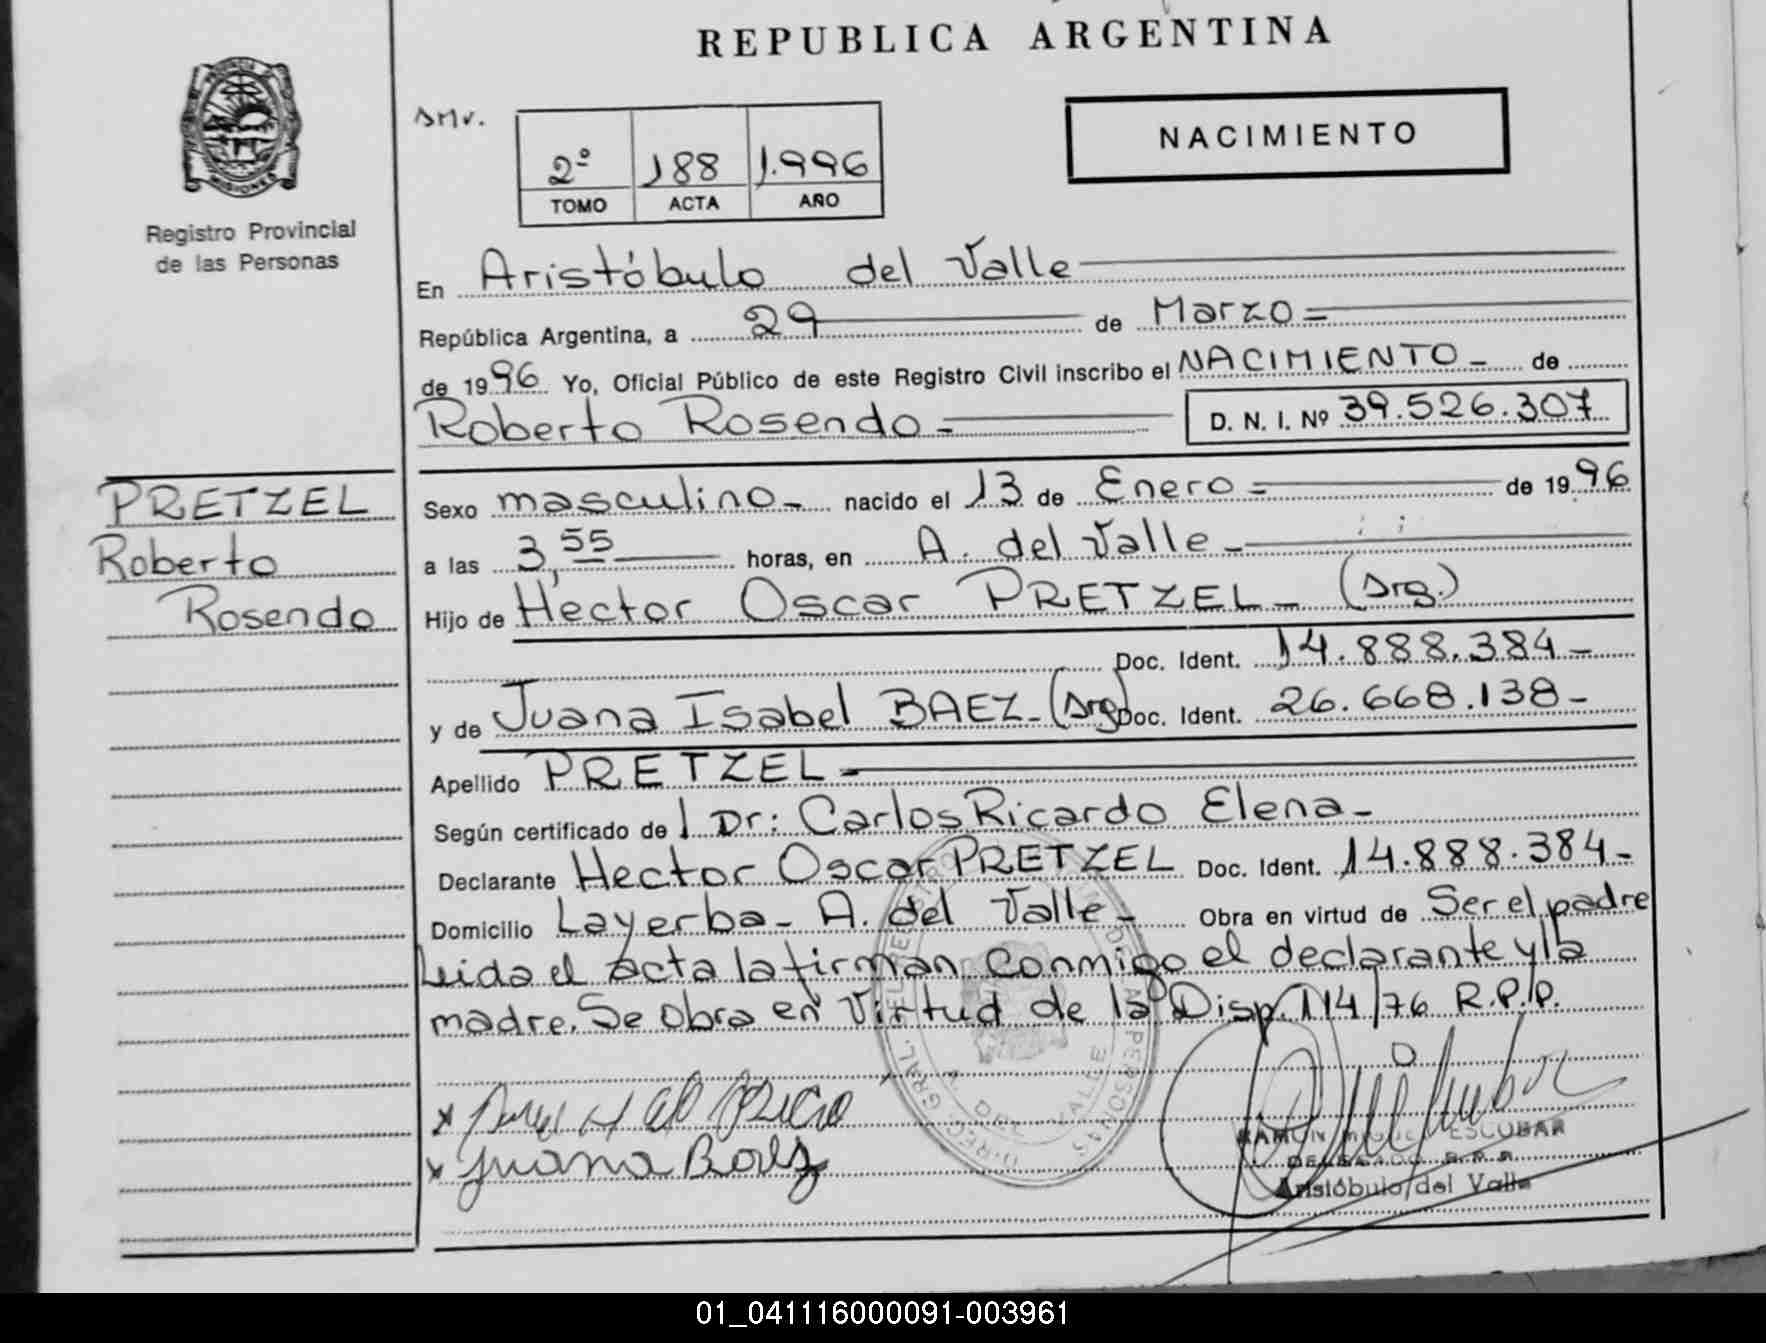 REPUBLICA ARGENTINA
PROVINCIA DE
MISIONES
Registro Provincial
de las Personas
NACIMIENTO
2º 188 1.996
TOMO ACTA AÑO
En Aristóbulo del Valle
República Argentina, a 29 de Marzo
de 1996 Yo, Oficial Público de este Registro Civil inscribo el NACIMIENTO - de
Roberto Rosendo - D. N. I. Nº 39.526.307
PRETZEL
Roberto
Rosendo
Sexo masculino - nacido el 13 de Enero de 1996
a las 3,55 horas, en A. del Valle -
Hijo de Hector Oscar PRETZEL - (Arg.)
Doc. Ident. 14.888.384 -
y de Juana Isabel BAEZ - (Arg) Doc. Ident. 26.668.138 -
Apellido PRETZEL -
Según certificado de l Dr: Carlos Ricardo Elena -
Declarante Hector Oscar PRETZEL Doc. Ident. 14.888.384 -
Domicilio La yerba - A. del Valle - Obra en virtud de Ser el padre
Leida el acta la firman conmigo el declarante y la
madre. Se obra en virtud de la Disp. 114/76 R.P.P.
Juana Baez
RAMON MIGUEL ESCOBAR
DELEGADO R.P.P.
Aristóbulo del Valle
01_041116000091-003961